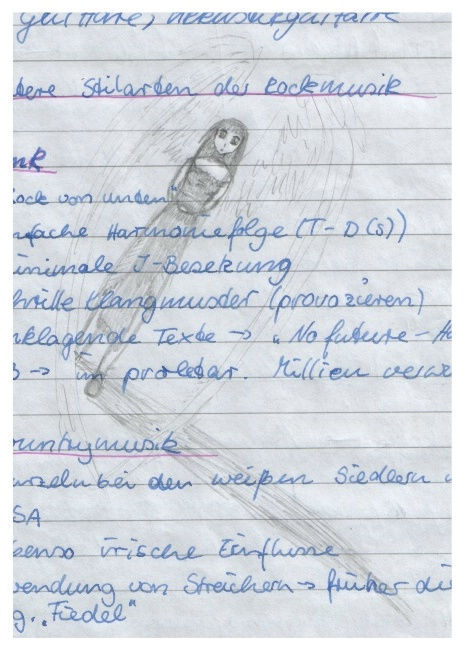 dere Stilarten der Rockmusik
nk
ock von unten"
nfache Harmoniefolge (T-D(S))
inimale I-Besetzung
hrille Klangmuster (provozieren)
nklagende Texte → "No future - H
3 → im proletar. Millien verw
untrymusik
urzeln bei den weißen Siedlern
SA
benso irische Einflüsse
wendung von Streichern → früher di
g. "Fiedel"